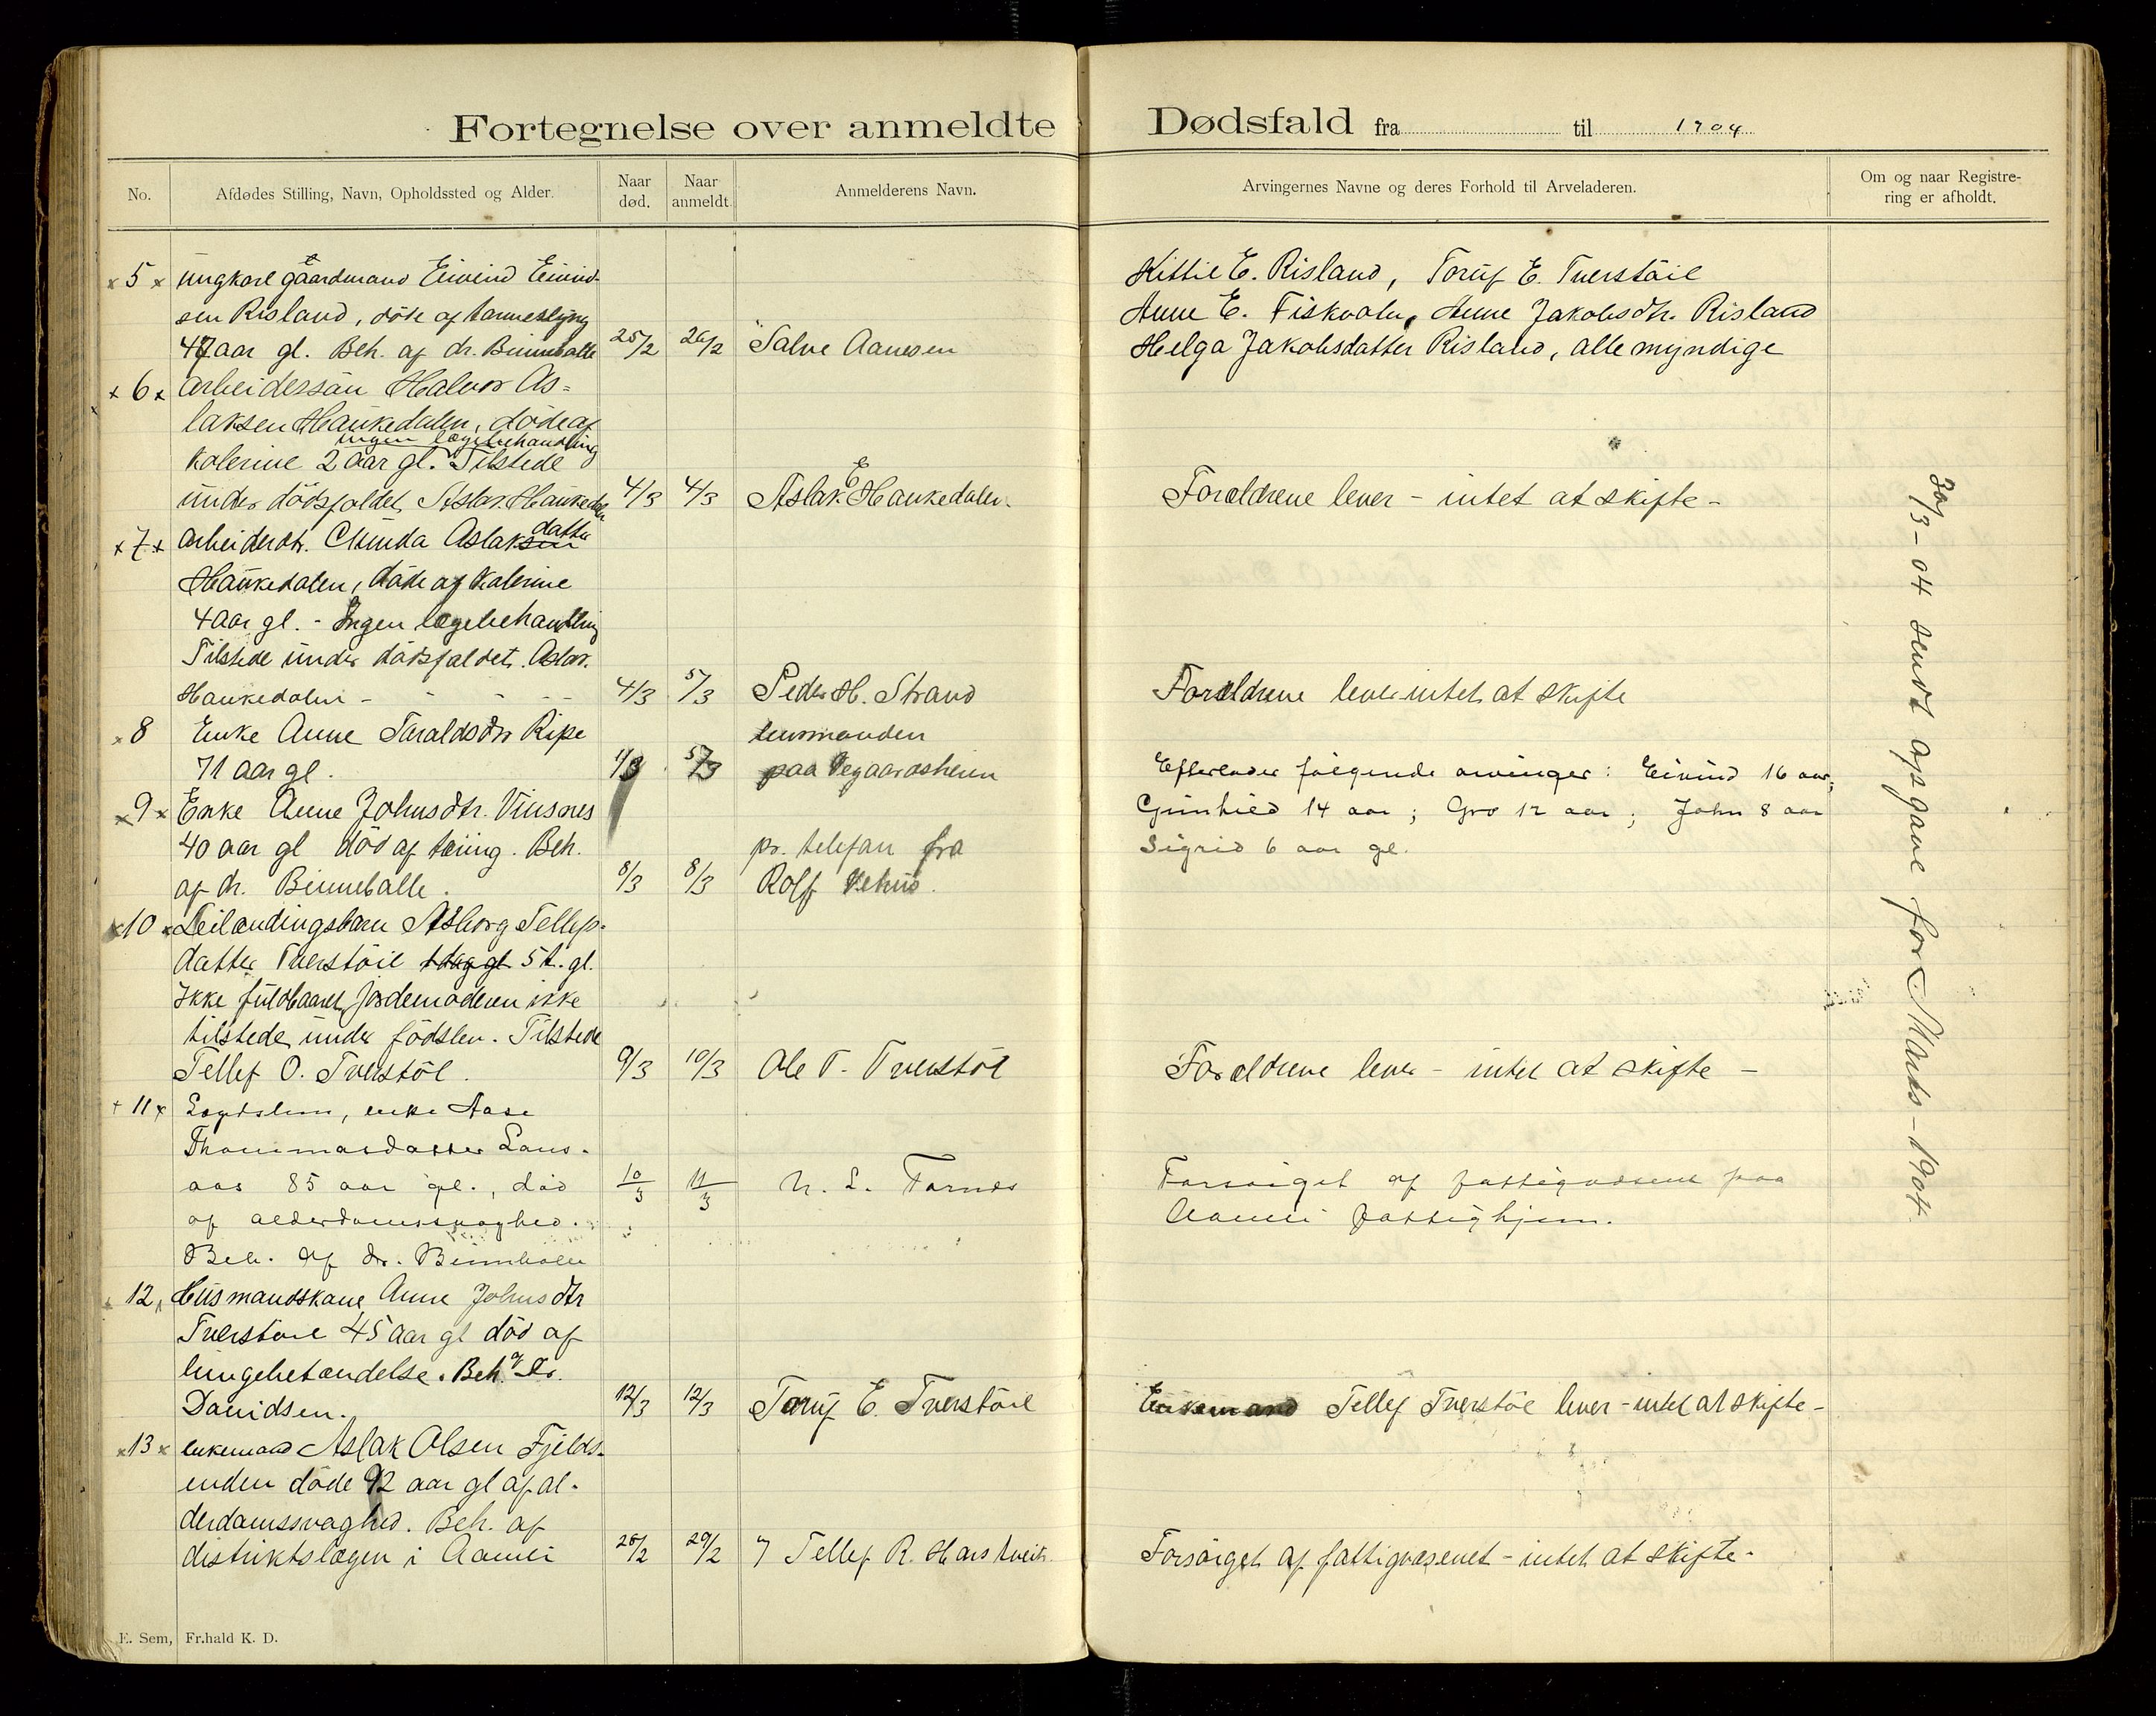 Fortegnelse over anmeldte Dødsfald fra til 1904
No.
Afdødes Stilling, Navn, Opholdssted og Alder.
Naar død.
Naar anmeldt.
Anmelderens Navn.
Arvingernes Navne og deres Forhold til Arveladeren.
Om og naar Registrering er afholdt.
x 5 x ungkarl gaardmand Eivind Eivind-
sen Risland, døde af
47 aar gl. Beh. af dr. Binneballe 25/2 26/2 Salve Aanesen
Kittil E. Risland, Toruf E. Tverstöil
Anne E. Fiskvatn, Anne Jakobsdtr. Risland
Helga Jakobsdatter Risland, alle myndige
x 6 x arbeidersön Halvor As-
laksen Haukedalen, døde af
ingen lægebehandling
kolerine 2 aar gl. Tilstede
under dödsfaldet Aslak Haukedalen 4/3 4/3 Aslak E Haukedalen.
Forældrene lever - intet at skifte -
x 7 x arbeiderdtr. Chunda Aslaksen datter
Haukedalen, døde af kolerine
4 aar gl. - Ingen lægebehandling
Tilstede under dødsfaldet Aslak
Haukedalen - - - - - 4/3 5/3 Peder H. Strand
Forældrene lever intet at skifte
x 8 Enke Anne Taraldsdtr Ripe lensmanden
71 aar gl. 1/3 5/3 paa Vegaardsheien
x 9 x Enke Anne Johnsdtr. Vinsnes
40 aar gl død af tæring. Beh. pr. telefon fra
af dr. Binneballe. 8/3 8/3 Rolf Vehus.
Efterlader følgende arvinger: Eivind 16 aar;
Gunhild 14 aar; Gro 12 aar; John 8 aar
Sigrid 6 aar gl.
x 10 x Leilændingsbarn Asborg Tellefs-
datter Tverstöil 1 dag gl 5 t. gl.
Ikke fuldbaaret, jordemoderen ikke
tilstede under fødslen. Tilstede
Tellef O. Tverstöl. 9/3 10/3 Ole T. Tverstöl
Forældrene lever - intet at skifte -
+ 11 x Lægdslem, enke Aase
Thommasdatter Laus-
aas 85 aar gl., död 10/3 11/3 N. L. Fornes
af alderdomssvaghed.
Beh. af dr. Binneballe
Forsörget af fattigvæsenet paa
Aamli fattighjem.
12 x Husmandskone Anne Johnsdtr
Tverstöil 45 aar gl död af
lungebetændelse. Beh. af Dr.
Davidsen. 12/3 12/3 Toruf E. Tverstöil
Enkemand Tellef Tverstöl lever - intet at skifte -
x 13 x enkemand Aslak Olsen Fjelds-
enden döde 92 aar gl af al-
derdomssvaghed. Beh. af
distriktslægen i Aamli 28/2 29/2 Tellef R. Harstveit.
Forsörget af fattigvæsenet - intet at skifte -
30/3 - 04 sendt opgave for Marts - 1904.
E. Sem, Fr.hald K. D.